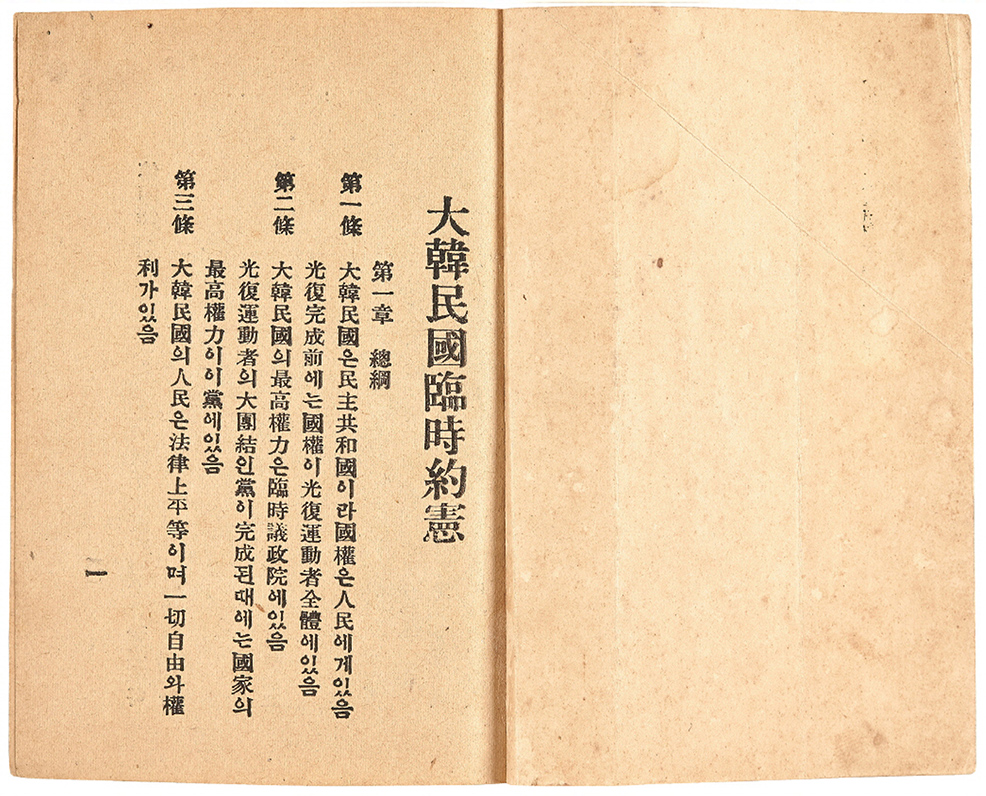 大韓民國臨時約憲
第一章 總綱
第一條 大韓民國은民主共和國이라國權은人民에게있음
光復完成前에는國權이光復運動者全體에있음
第二條 大韓民國의最高權力은臨時議政院에있음
光復運動者의大團結인黨이完成된때에는國家의
最高權力이이黨에있음
第三條 大韓民國의人民은法律上平等이며一切自由와權
利가있음
一